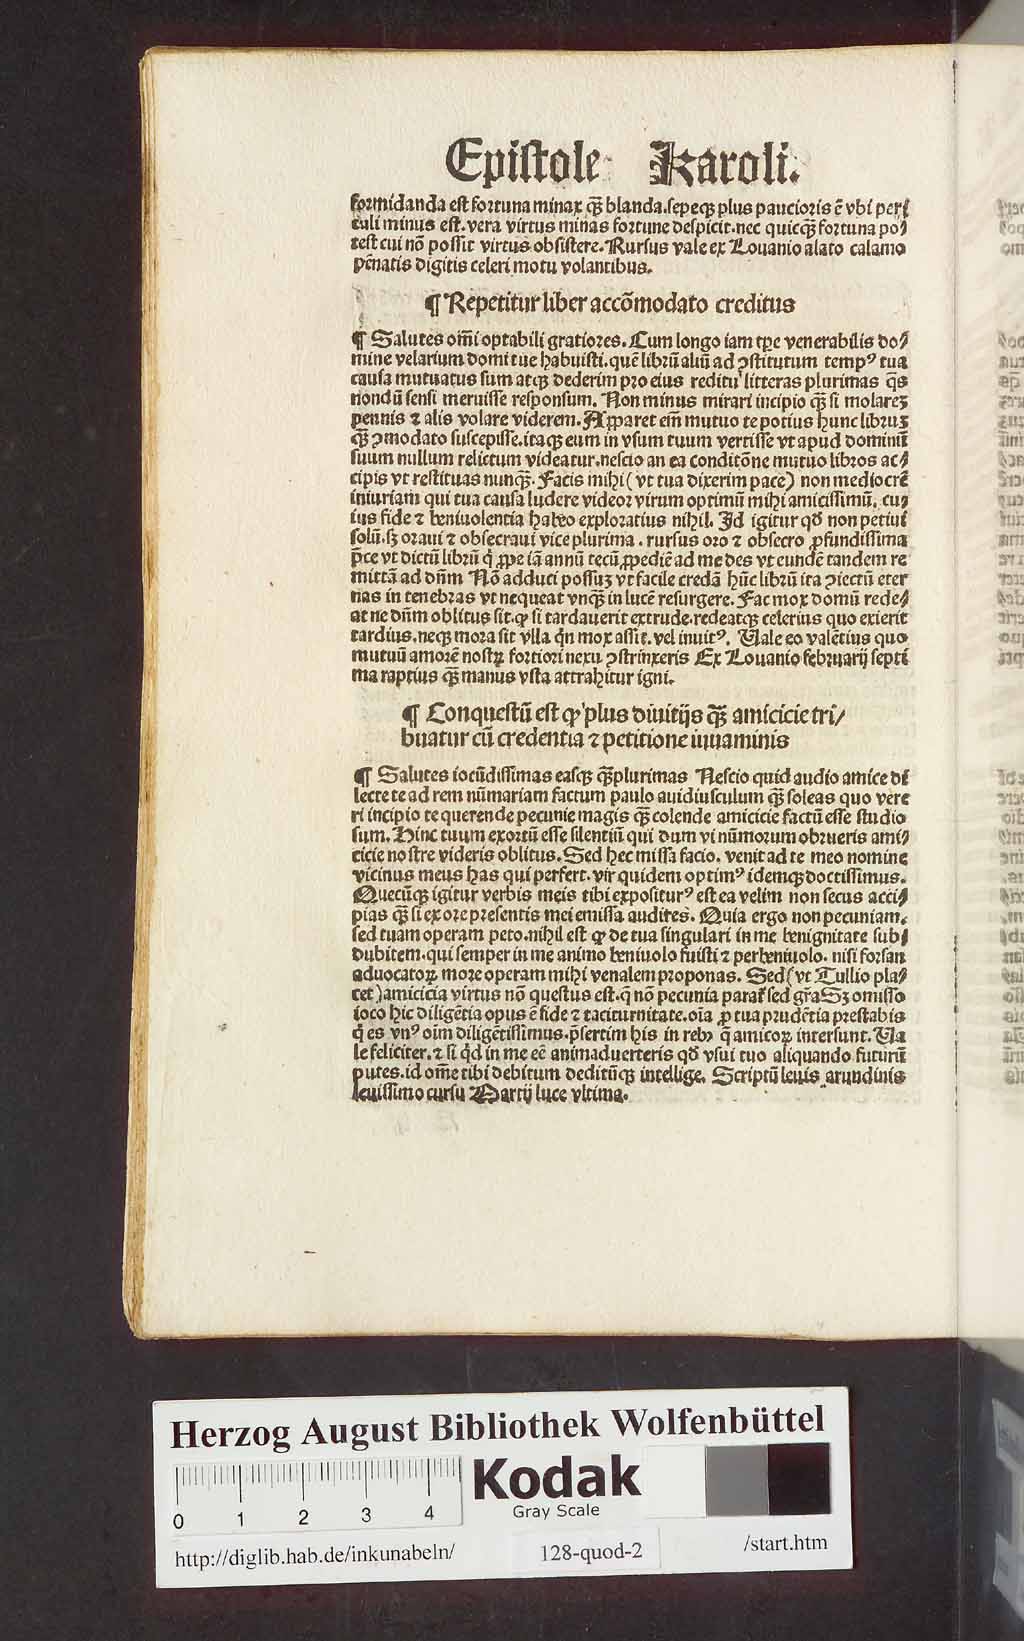 Epistole Karoli.
formidanda est fortuna minax qꝫ̃ blanda.sepeqꝫ plus paucioris ē vbi peri
culi minus est.vera virtus minas fortune despicit.nec quicqꝫ̃ fortuna po⸗
test cui nō possit virtus obsistere. Rursus vale ex Louanio alato calamo
pēnatis digitis celeri motu volantibus.
¶ Repetitur liber accōmodato creditus
¶ Salutes om̄i optabili gratiores. Cum longo iam tp̄e venerabilis do⸗
mine velarium domi tue habuisti.quē librū aliū ad ꝯstitutum tempꝰ tua
causa mutuatus sum atqꝫ dederim pro eius reditu litteras plurimas q̄s
nondū sensi meruisse responsum. Non minus mirari incipio qꝫ̃ si molarez
pennis ⁊ alis volare viderem. Apparet em̄ mutuo te potius hunc libruz
qꝫ̃ ꝯmodato suscepisse.itaqꝫ eum in vsum tuum vertisse vt apud dominū
suum nullum relictum videatur.nescio an ea conditōne mutuo libros ac⸗
cipis vt restituas nunqꝫ̃. Facis mihi (vt tua dixerim pace) non mediocrē
iniuriam qui tua causa ludere videor virum optimū mihi amicissimū. cu⸗
ius fide ⁊ beniuolentia habeo exploratius nihil. Id igitur qđ non petiui
solū.sꝫ oraui ⁊ obsecraui vice plurima. rursus oro ⁊ obsecro ꝓfundissima
p̄ce vt dictū librū q̇ ꝓpe iā annū tecū ꝓpediē ad me des vt eundē tandem re
mittā ad dn̄m Nō adduci possuz vt facile credā hūc librū ita ꝯiectū eter
nas in tenebras vt nequeat vnqꝫ̃ in lucē resurgere. Fac mox domū rede⸗
at ne dn̄m oblitus sit.ꝙ si tardauerit extrude.redeatqꝫ celerius quo exierit
tardius.neqꝫ mora sit vlla q̇n mox assit.vel inuitꝰ. Vale eo valētius quo
mutuū amorē nostꝝ fortiori nexu ꝯstrinxeris Ex Louanio februarij septi
ma raptius qꝫ̃ manus vsta attrahitur igni.
¶ Conquestū est ꝙ plus diuitijs qꝫ̃ amicicie tri⸗
buatur cū credentia ⁊ petitione iuuaminis
¶ Salutes iocūdissimas easqꝫ qꝫ̃plurimas Nescio quid audio amice di
lecte te ad rem nūmariam factum paulo auidiusculum qꝫ̃ soleas quo vere
ri incipio te querende pecunie magis qꝫ̃ colende amicicie factū esse studio
sum. Hinc tuum exortū esse silentiū qui dum vi nūmorum obrueris ami⸗
cicie nostre videris oblitus. Sed hec missa facio. venit ad te meo nomine
vicinus meus has qui perfert. vir quidem optimꝰ idemqꝫ doctissimus.
Quecūqꝫ igitur verbis meis tibi expositurꝰ est ea velim non secus acci⸗
pias qꝫ̃ si ex ore presentis mei emissa audires. Quia ergo non pecuniam.
sed tuam operam peto.nihil est ꝙ de tua singulari in me benignitate sub⸗
dubitem.qui semper in me animo beniuolo fuisti ⁊ perbeniuolo. nisi forsan
aduocatoꝝ more operam mihi venalem proponas. Sed (vt Tullio pla⸗
cet) amicicia virtus nō questus est.q̄ nō pecunia parat̄ sed gr̄a Sꝫ omisso
ioco hic diligētia opus ē fide ⁊ taciturnitate.oīa ꝓ tua prudētia prestabis
q̇ es vnꝰ oīm diligētissimus.p̄sertim his in rebꝰ q̄ amicoꝝ intersunt. Va
le feliciter.⁊ si q̇d in me eē animaduerteris qđ vsui tuo aliquando futurū
putes.id om̄e tibi debitum deditūqꝫ intellige. Scriptū leuis arundinis
leuissimo cursu Martij luce vltima.
Herzog August Bibliothek Wolfenbüttel
Kodak
Gray Scale
0 1 2 3 4
http://diglib.hab.de/inkunabeln/ 128-quod-2 /start.htm